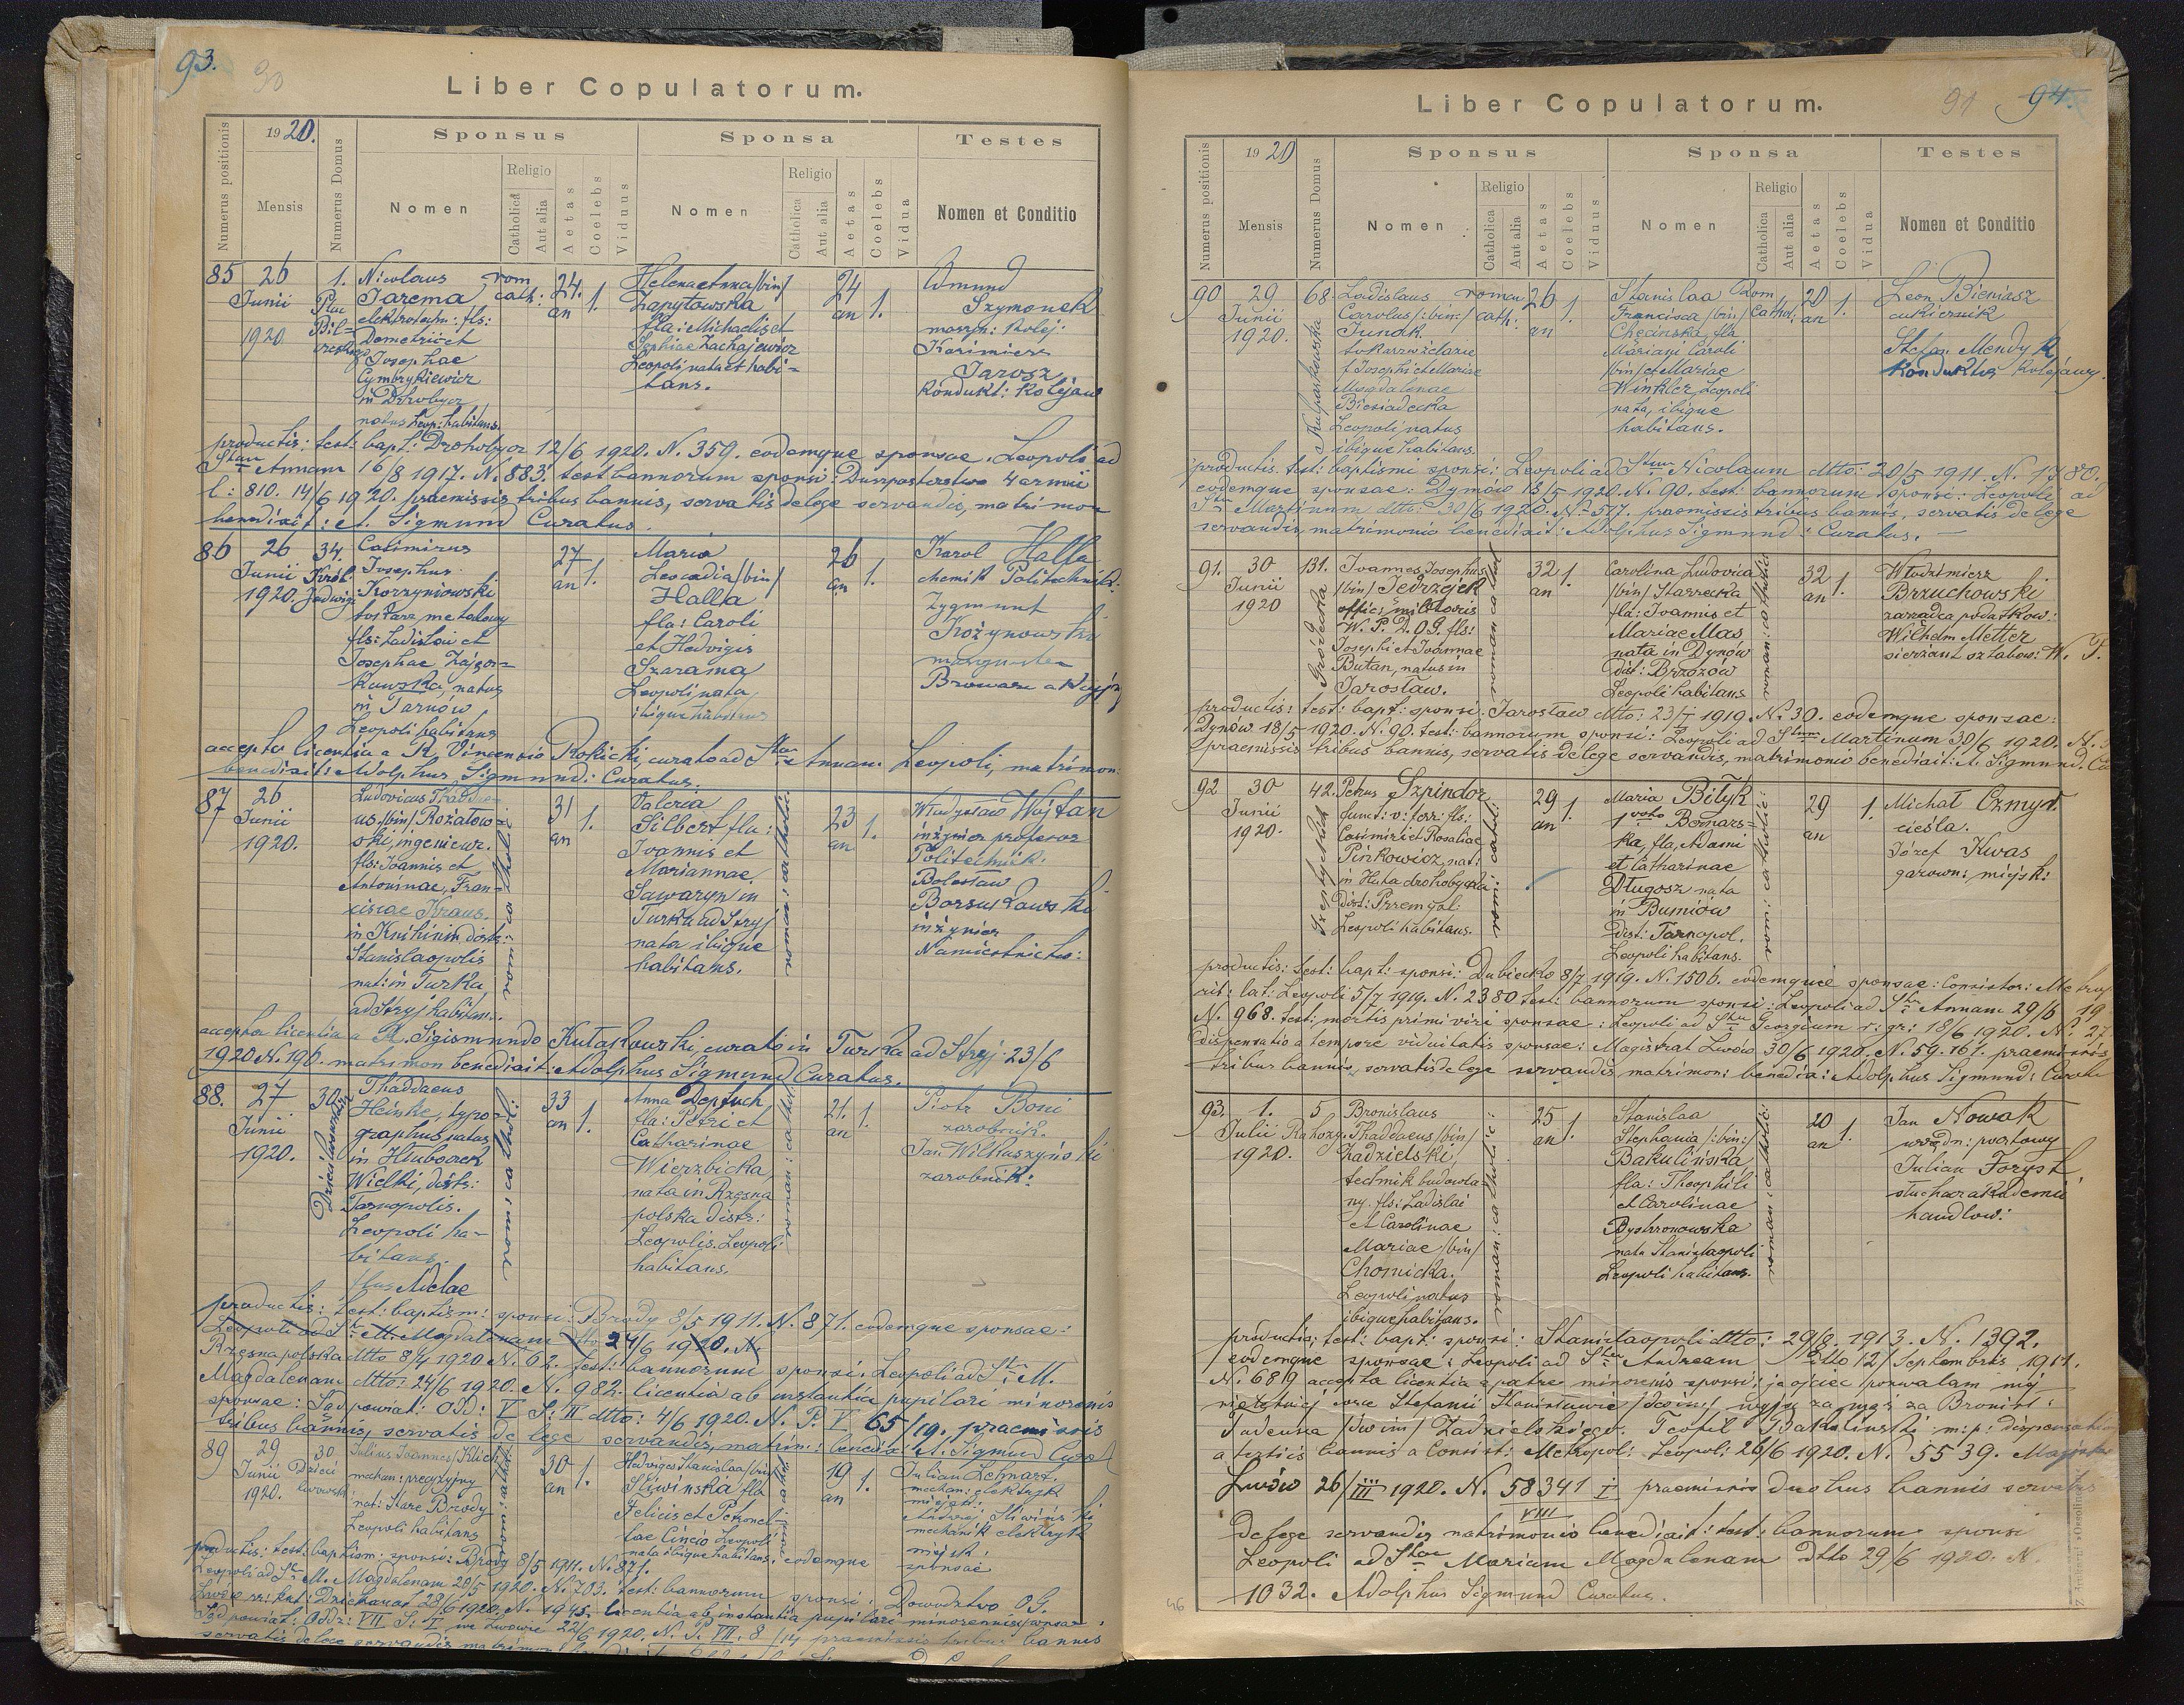 93.
30
Liber Copulatorum.
Numerus positionis
1920.
Mensis
Numerus Domus
Sponsus
Nomen
Religio
Catholica
Aut alia
Aetas
Coelebs
Viduus
Sponsa
Nomen
Religio
Catholica
Aut alia
Aetas
Coelebs
Vidua
Testes
Nomen et Conditio
85
26
Junii
1920
1.
Plac
Nicolaus
Jarema
elektrotechn: fls:
Demetrii et
Josephae
Cymbrykiewicz
in Drohobycz
natus Leop: habitans.
rom
cath:
24.
an
1.
Helena et Anna /bin/
Zapytowska
fla: Michaelis et
Sophiae Zachajewicz
Leopoli nata et habi=
tans.
24
an
1.
Edmund
Szymonek
maszyn: kolej:
Kazimierz
Jarosz
Kondukt: Kolejow
productis: test: bapt: Drohobycz 12/6 1920. N. 359. eodemque sponsae: Leopoli ad
Stam Annam 16/8 1917. N. 883. test bannorum sponsi: Duszpasterstwo 4 armii
l: 810. 14/6 1920. praemissis tribus bannis, servatis de lege servandis, matrimon
benedixit: A. Sigmund Curatus.
86
26
Junii
1920.
34.
Król.
Jadwigi
Casimirus
Josephus
Korzyniowski
tokarz metalowy
fls: Ladislai et
Josephae Zajgor=
kowska, natus
in Tarnów
Leopoli habitans
27
an
1.
Maria
Leocadia /bin/
Halla
fla: Caroli
et Hedvigis
Szarama
Leopoli nata,
ibique habitans
26
an
1.
Karol Halla
chemik Politechnik.
Zygmunt
Kożynowski
accepta licentia a R. Vincensio Rokicki, curato ad Stam Annam Leopoli, matrimon:
benedixit: Adolphus Sigmund: Curatus.
87
26
Junii
1920.
Ludovicus Thaddae=
us /bin/ Rozalow=
ski, ingenieur.
fls: Joannis et
Antoninae, Fran=
ciscae Kraus.
in Knihinin distr:
Stanislaopolis
nat: in Turka
ad Stryj habitan..
rom: catholic:
31
an
1.
Valeria
Silbert fla:
Joannis et
Mariannae
Sawaryn in
Turka ad Stryj
nata ibique
habitans.
roman: catholic:
23
an
1.
Władysław Wojtan
inżynier profesor
Politechnik.
Bolesław
inżynier
Namiestnictw:
accepta licentia a R. Sigismundo Kułakowski, curato in Turka ad Stryj: 23/6
1920 N. 190. matrimon benedixit: Adolphus Sigmund Curatus.
88.
27
Junii
1920.
30.
Dzieci lwowskich
Thaddaeus
Heinke, typo=
graphus natus
in Hluboczek
Wielki, distr:
Tarnopolis.
Leopoli ha=
bitans.
filius Adelae
rom: cathol:
33
an
1.
Anna Deptuch
fla: Petri et
Catharinae
Wierzbicka,
nata in Rzęsna
polska distr:
Leopolis. Leopoli
habitans.
roman: cathol:
21.
an
1.
Piotr Boni
zarobnik.
Jan Wilkuszyński
zarobnik:
productis: test: baptism: sponsi: Brody 8/5 1911. N. 871. eodemque sponsae:
Leopoli ad S. M. Magdalenam dtto 24/6 1920. N.
Rzęsna polska dtto 8/4 1920 N. 62. test: bannorum sponsi: Leopoli ad Stam M.
Magdalenam dtto: 24/6 1920. N. 982. licentia ab instantia pupilari minorenis
sponsae: Sąd powiat: Odd: V S: II dtto: 4/6 1920. N. P. V 65/19. praemissis
tribus bannis, servatis de lege servandis, matrim: benedix: A. Sigmund Curat
89
29
Junii
1920.
30
Dzieci
lwowski
Julius Joannes /Klich/
mechan: precyzyjny
nat: Stare Brody
Leopoli habitans
30
an
1.
Hedvigis Stanislaa /bin/
Śliwińska fla
Felicis et Petronel=
lae Cincio Leopoli
nata ibique habitans.
19
an
1.
Julian Lehnart.
mechan: elektryk
miejski:
Andrzej Śliwiński
mechanik elektryk
miejsk.
productis: test: baptism: sponsi: Brody 8/5 1911. N. 871. eodemque sponsae
Leopoli ad S. M. Magdalenam 20/5 1920. N. 703. test: bannorum sponsi: Dowództwo O.G.
Lwów rz: kat: Dziekanat 28/6 1920. N. 1945. licentia ab instantia pupilari minorennis sponsae
Sąd powiat: Odd: VII S: I we Lwowie 22/6 1920. N. P. VII. 8/14 praemissis tribus bannis
91
94.
Liber Copulatorum.
Numerus positionis
1920
Mensis
Numerus Domus
Sponsus
Nomen
Religio
Catholica
Aut alia
Aetas
Coelebs
Viduus
Sponsa
Nomen
Religio
Catholica
Aut alia
Aetas
Coelebs
Vidua
Testes
Nomen et Conditio
90
29
Junii
1920.
68.
Kulparkowska
Ladislaus
Carolus /:bin:/
Junak.
tokarz w żelazie
f. Josephi et Mariae
Magdalenae
Biesiadecka
Leopoli natus
ibique habitans.
roman
cath:
26
an
1.
Stanislaa
Francisca /bin/
Chęcinska fla
Mariani Caroli
/bin/ et Mariae
Winkler Leopoli
nata, ibique
habitans.
Rom
Cathol:
20
an
1.
Leon Bieniasz
cukiernik
Stefan Mendyk
Konduktor kolejowy.
productis. test: baptismi sponsi: Leopoli ad Stum Nicolaum dtto: 20/5 1911. N. 1780.
eodemque sponsae: Dynów 18/5 1920. N. 90. test: bannorum sponsi: Leopoli ad
Stum Martinum dtto: 30/6 1920. N. 577. praemissis tribus bannis, servatis de lege
servandis, matrimonio benedixit: Adolphus Sigmund: Curatus.
91.
30
Junii
1920
131.
Gródecka
Joannes Josephus
/bin/ Jedrzejek
offic: militaris
W. P. D. O.G. fls:
Josephi et Joannae
Butan, natus in
Jarosław.
roman cathol
32
an
1.
Carolina Ludovica
/bin/ Starzecka
fla: Joannis et
Mariae Mas
nata in Dynów
dist: Brzozów
Leopoli habitans
roman: catholic
32
an
1.
Włodzimierz
Brzuchowski
zarządca podatkow:
Wilhelm Metter
sierżant sztabow: W. P.
productis: test: bapt: sponsi: Jarosław dtto: 23/I 1919. N. 30. eodemque sponsae:
Dynów 18/5 1920. N. 90. test: bannorum sponsi: Leopoli ad Stum Martinum 30/6 1920. N.
praemissis tribus bannis, servatis de lege servandis, matrimonio benedixit: A. Sigmund. Cu
92
30
Junii
1920.
42.
Szeptyckich
Petrus Szpindor
funct: v: ferr: fls:
Casimiri et Rosaliae
Pinkowicz, nat:
in Huta drohobycka
dist: Przemysl:
Leopoli habitans.
rom: cathol:
29
an
1.
Maria Bityk
1 voto Bernars=
ka, fla, Adami
et Catharinae
Długosz nata
in Bumiów
dist: Tarnopol.
Leopoli habitans.
rom: catholic:
29
an
1.
Michał Czmyd.
cieśla.
Józef Kwas
gazown: miejsk:
productis: test: bapt: sponsi: Dubiecko 8/7 1919. N. 1506. eodemque sponsae: Consistor: Metrop
rit: lat: Leopoli 5/7 1919. N. 2380 test: bannorum sponsi: Leopoli ad Stam Annam 29/6 19
N. 968. test: mortis primi viri sponsae: Leopoli ad Stum Georgium r: gr: 18/6 1920. N. 27
dispensatio a tempore viduitatis sponsae: Magistrat Lwów 30/6 1920. N. 59.167. praemissis
tribus bannis, servatis de lege servandis matrimon: benedix: Adolphus Sigmund: Curatu
93.
1.
Julii
1920.
5
Rahozy.
Bronislaus
Thaddaeus /bin/
Zadzielski,
technik budowla
ny. fls: Ladislai
et Carolinae
Mariae /bin/
Chomicka.
Leopoli natus
ibique habitans.
roman: catholic:
25
an
1.
Stanislaa
Stephania /:bin:/
Bakulińska,
fla: Theophili
et Carolinae
Bystronowska
nata Stanislaopoli
Leopoli habitans.
roman: catholic:
20
an
1.
Jan Nowak
urzędn: pocztowy
Julian Foryst
słuchacz akademii
handlow:
productis: test: bapt: sponsi: Stanislaopoli dtto: 29/8. 1913. N. 1392.
eodemque sponsae: Leopoli ad Stum Andream dtto 12/ Septembris 1911.
N. 6819 accepta licentia a patre minorenis sponsi: ja ojciec pozwalam mej
nieletniej córce Stefanii Stanisławie /dwoim/ wyjść za mąż za Bronisł:
Tadeusza /dwoim/ Zadzielskiego. Teofil Bakulinski m:p: dispensatio
a tertiis bannis a Consist: Metropol: Leopoli 26/6 1920. N. 5539. Magistrat
Lwów 26/III 1920. N. 58341 I praemissis duobus bannis servatis
VIII
de lege servandis matrimonio benedixit: test: bannorum sponsi
Leopoli ad Stam Mariam Magdalenam dtto 29/6 1920. N.
1032. Adolphus Sigmund Curatus.
46